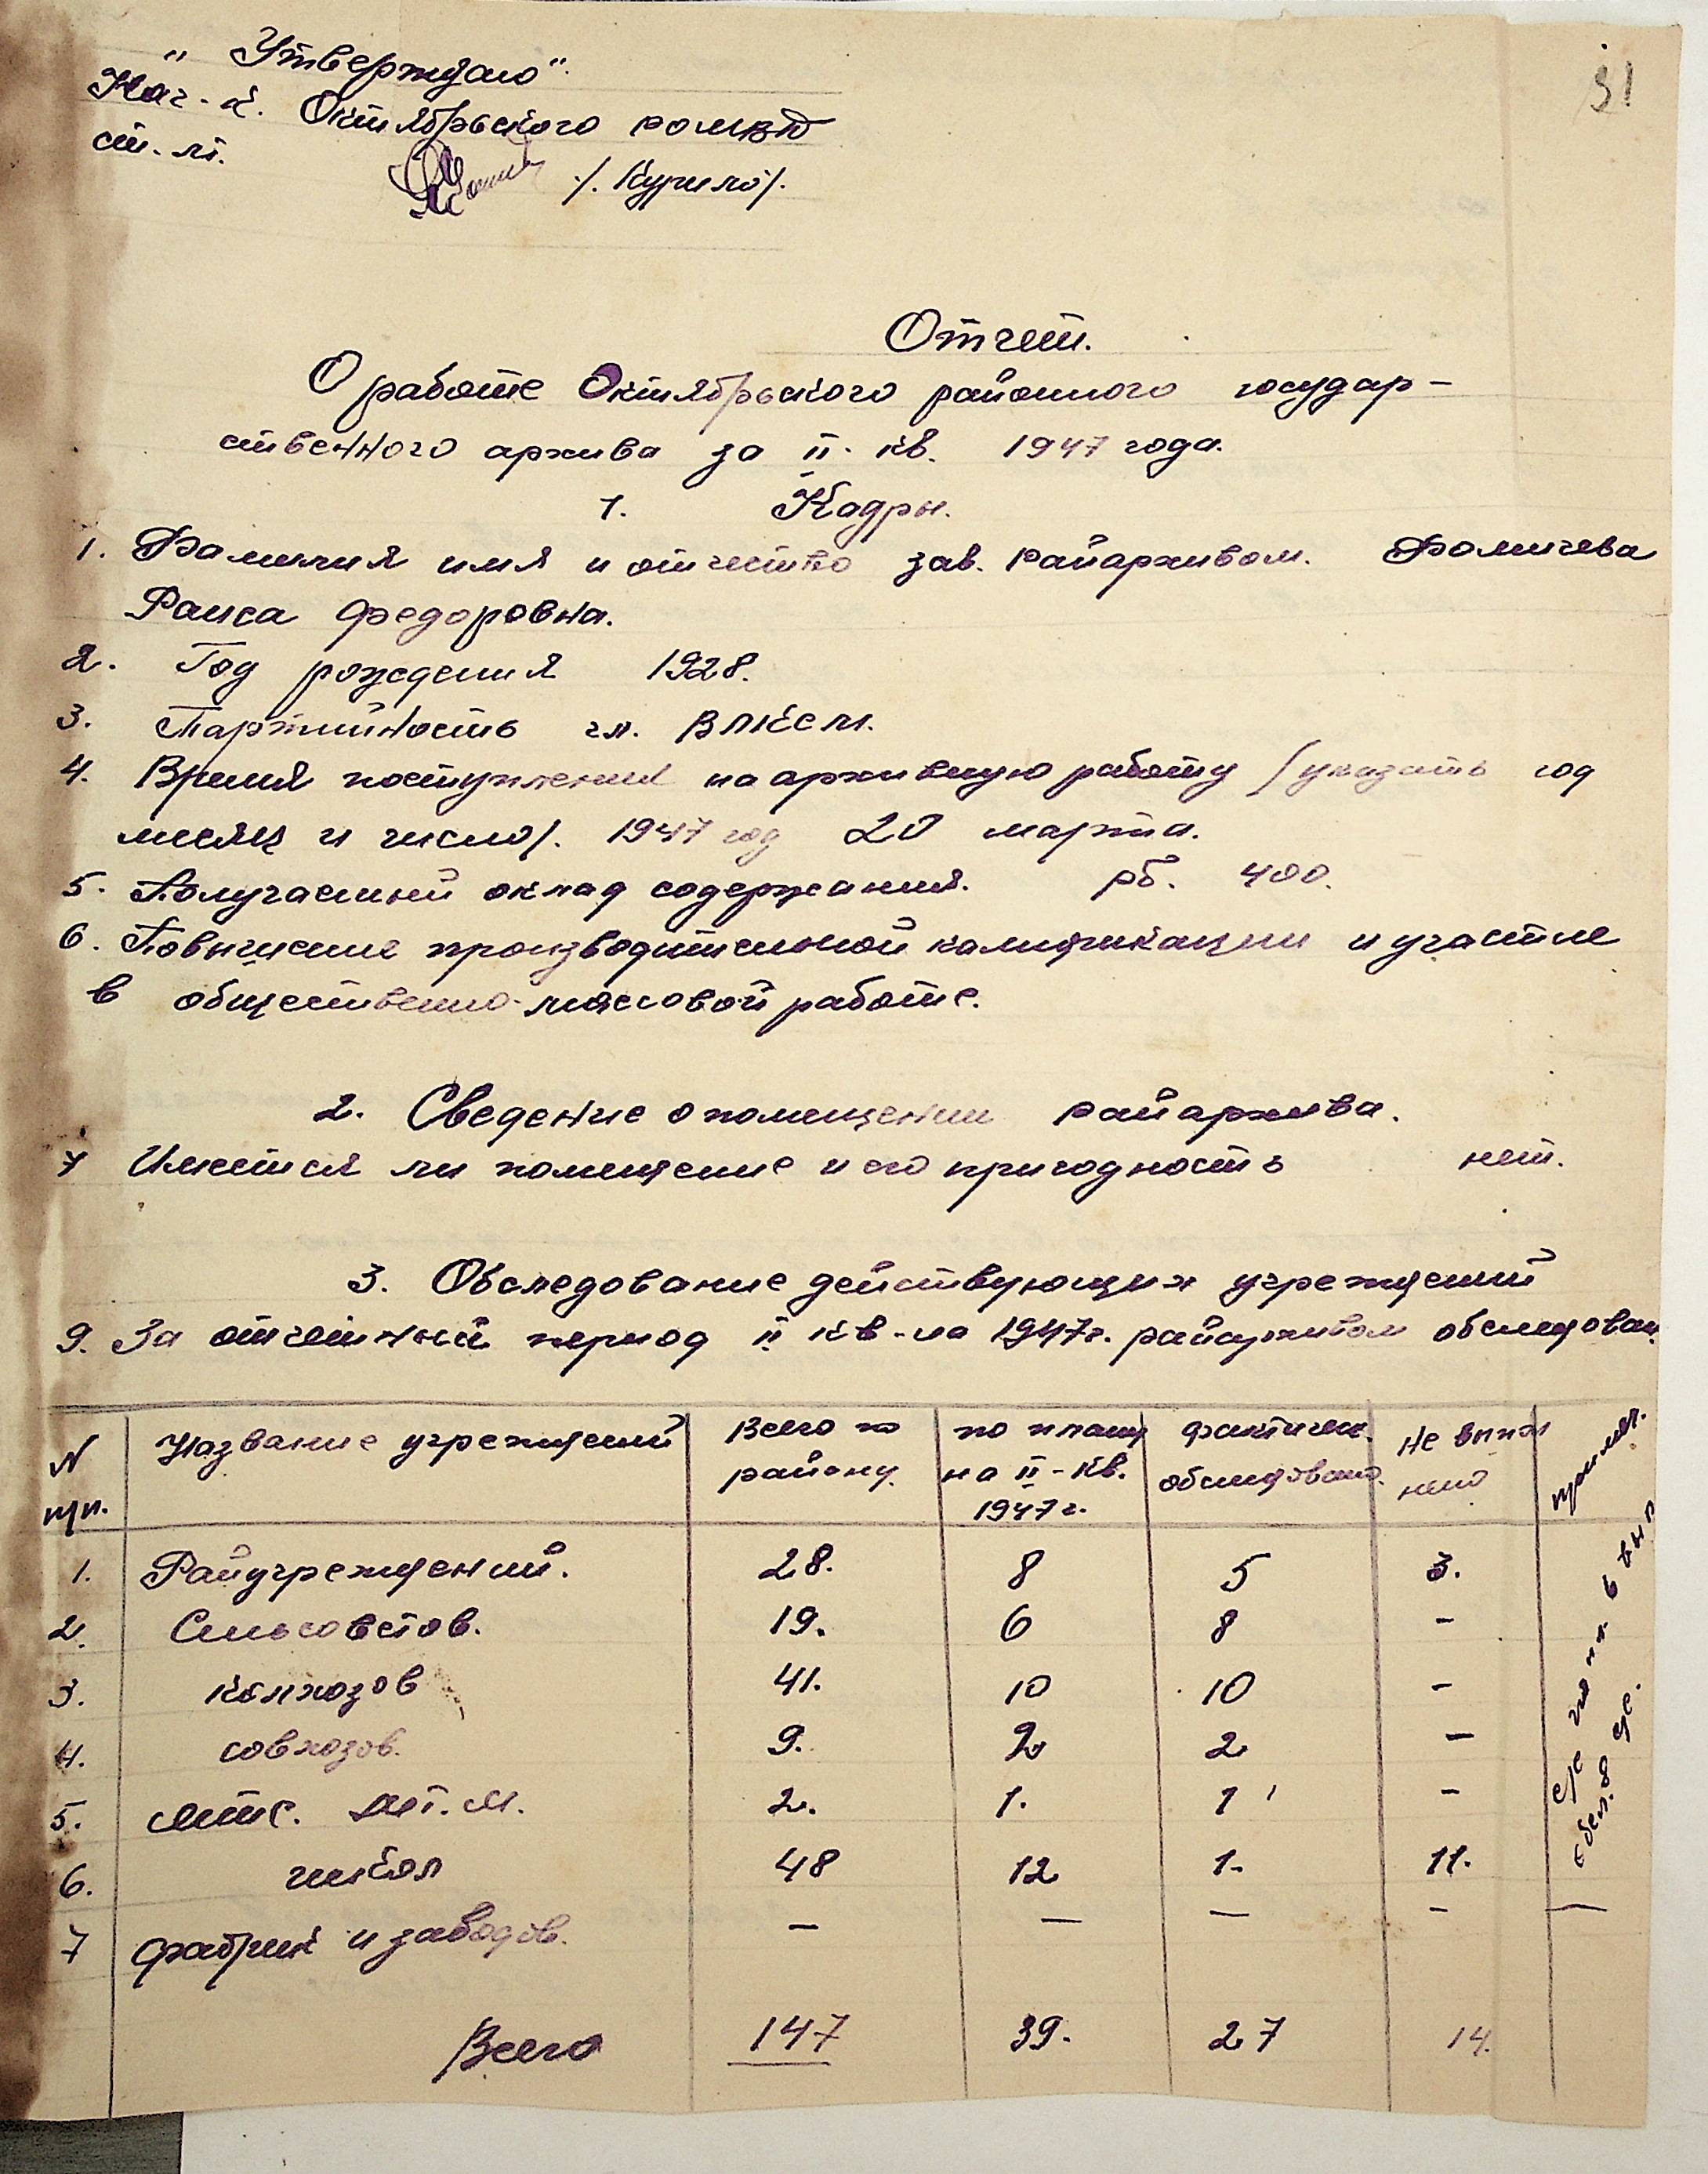 31
„ Утверждаю“.
Нач-к. Октябрьского РОМВД
ст. лт.
/. Курило/.
Отчет.
О работе Октябрьского районного государ-
ственного архива за II. кв. 1947 года.
1. Кадры.
1. Фамилия имя и отчество зав. райархивом. Фомичева
Раиса Федоровна.
2. Год рождения 1928.
3. Партийность чл. ВЛКСМ.
4. Время поступления на архивную работу /указать год
месяц и число/. 1947 год 20 марта.
5. Получаемый оклад содержания. рб. 400.
6. Повышение производительной калификации и участие
в общественно-массовой работе.
2. Сведение о помещении райархива.
7 Имеется ли помещение и его пригодность нет.
3. Обследование действующих учреждений
9. За отчетный период II кв-ла 1947г. райархивом обследован.
N п/п. Название учреждений Всего по району по плану на II-кв. 1947 г. фактическ. обследовано. Не выпол нено примеч.
1. Райучреждений. 28. 8 5 3.
2. Сельсоветов. 19. 6 8 -
3. колхозов 41. 10 10 -
4. совхозов. 9. 2 2 -
5. мтс. мт.м. 2. 1. 1 -
6. школ 48 12 1. 11.
7 фабрик и заводов. - - - -
Всего 147 39. 27 14.
с/с по пл. 6 вып
обсл. 8 с/с.